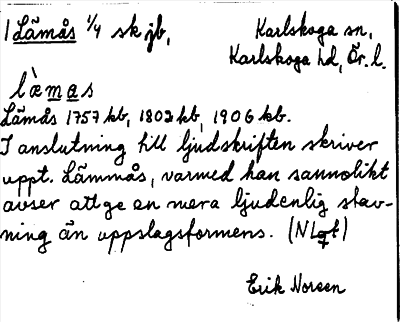 1 Lämås 1/4 sk jb, Karlskoga sn,
Karlskoga hd, Ör. l.
lä̀mas
Lämås 1757 kb, 1802 kb, 1906 kb.
I anslutning till ljudskriften skriver
uppt. Lämmås, varmed han sannolikt
avser att ge en mera ljudenlig stav-
ning än uppslagsformens.
Erik Noreen